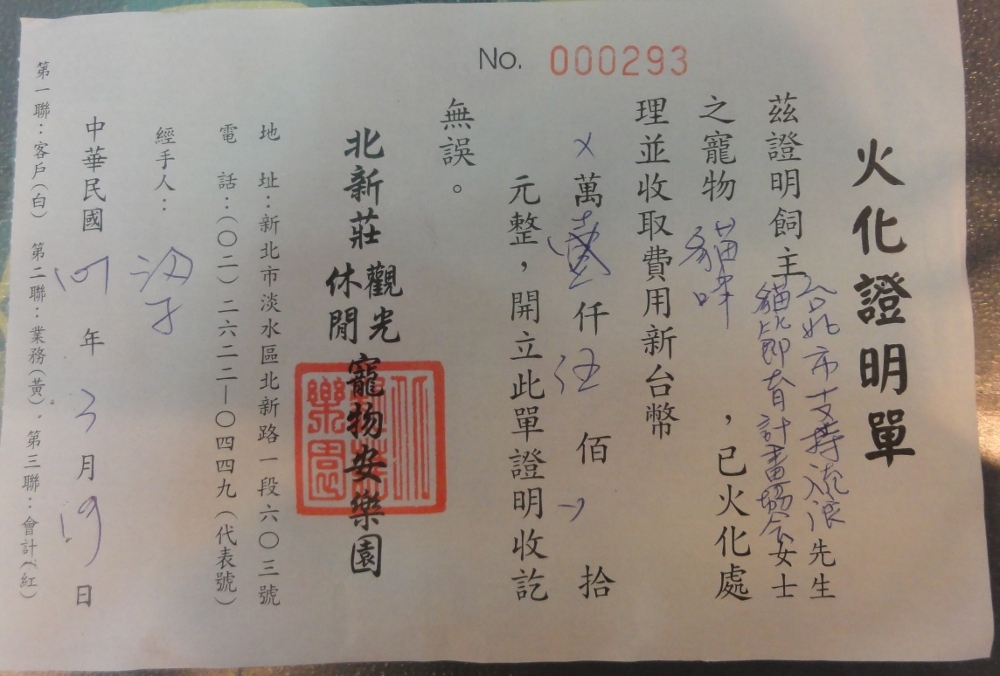 No. 000293
火化證明單
茲證明飼主台北市支持流浪貓節育計畫協會先生女士
之寵物貓咪，已火化處
理並收取費用新台幣
×萬壹仟伍佰 拾
元整，開立此單證明收訖
無誤。
北新莊觀光休閒寵物安樂園
地 址：新北市淡水區北新路一段六０三號
電 話：(０二)二六二二-０四四九(代表號)
經手人：
中華民國 年3月19日
第一聯：客戶(白) 第二聯：業務(黃)。第三聯：會計(紅)